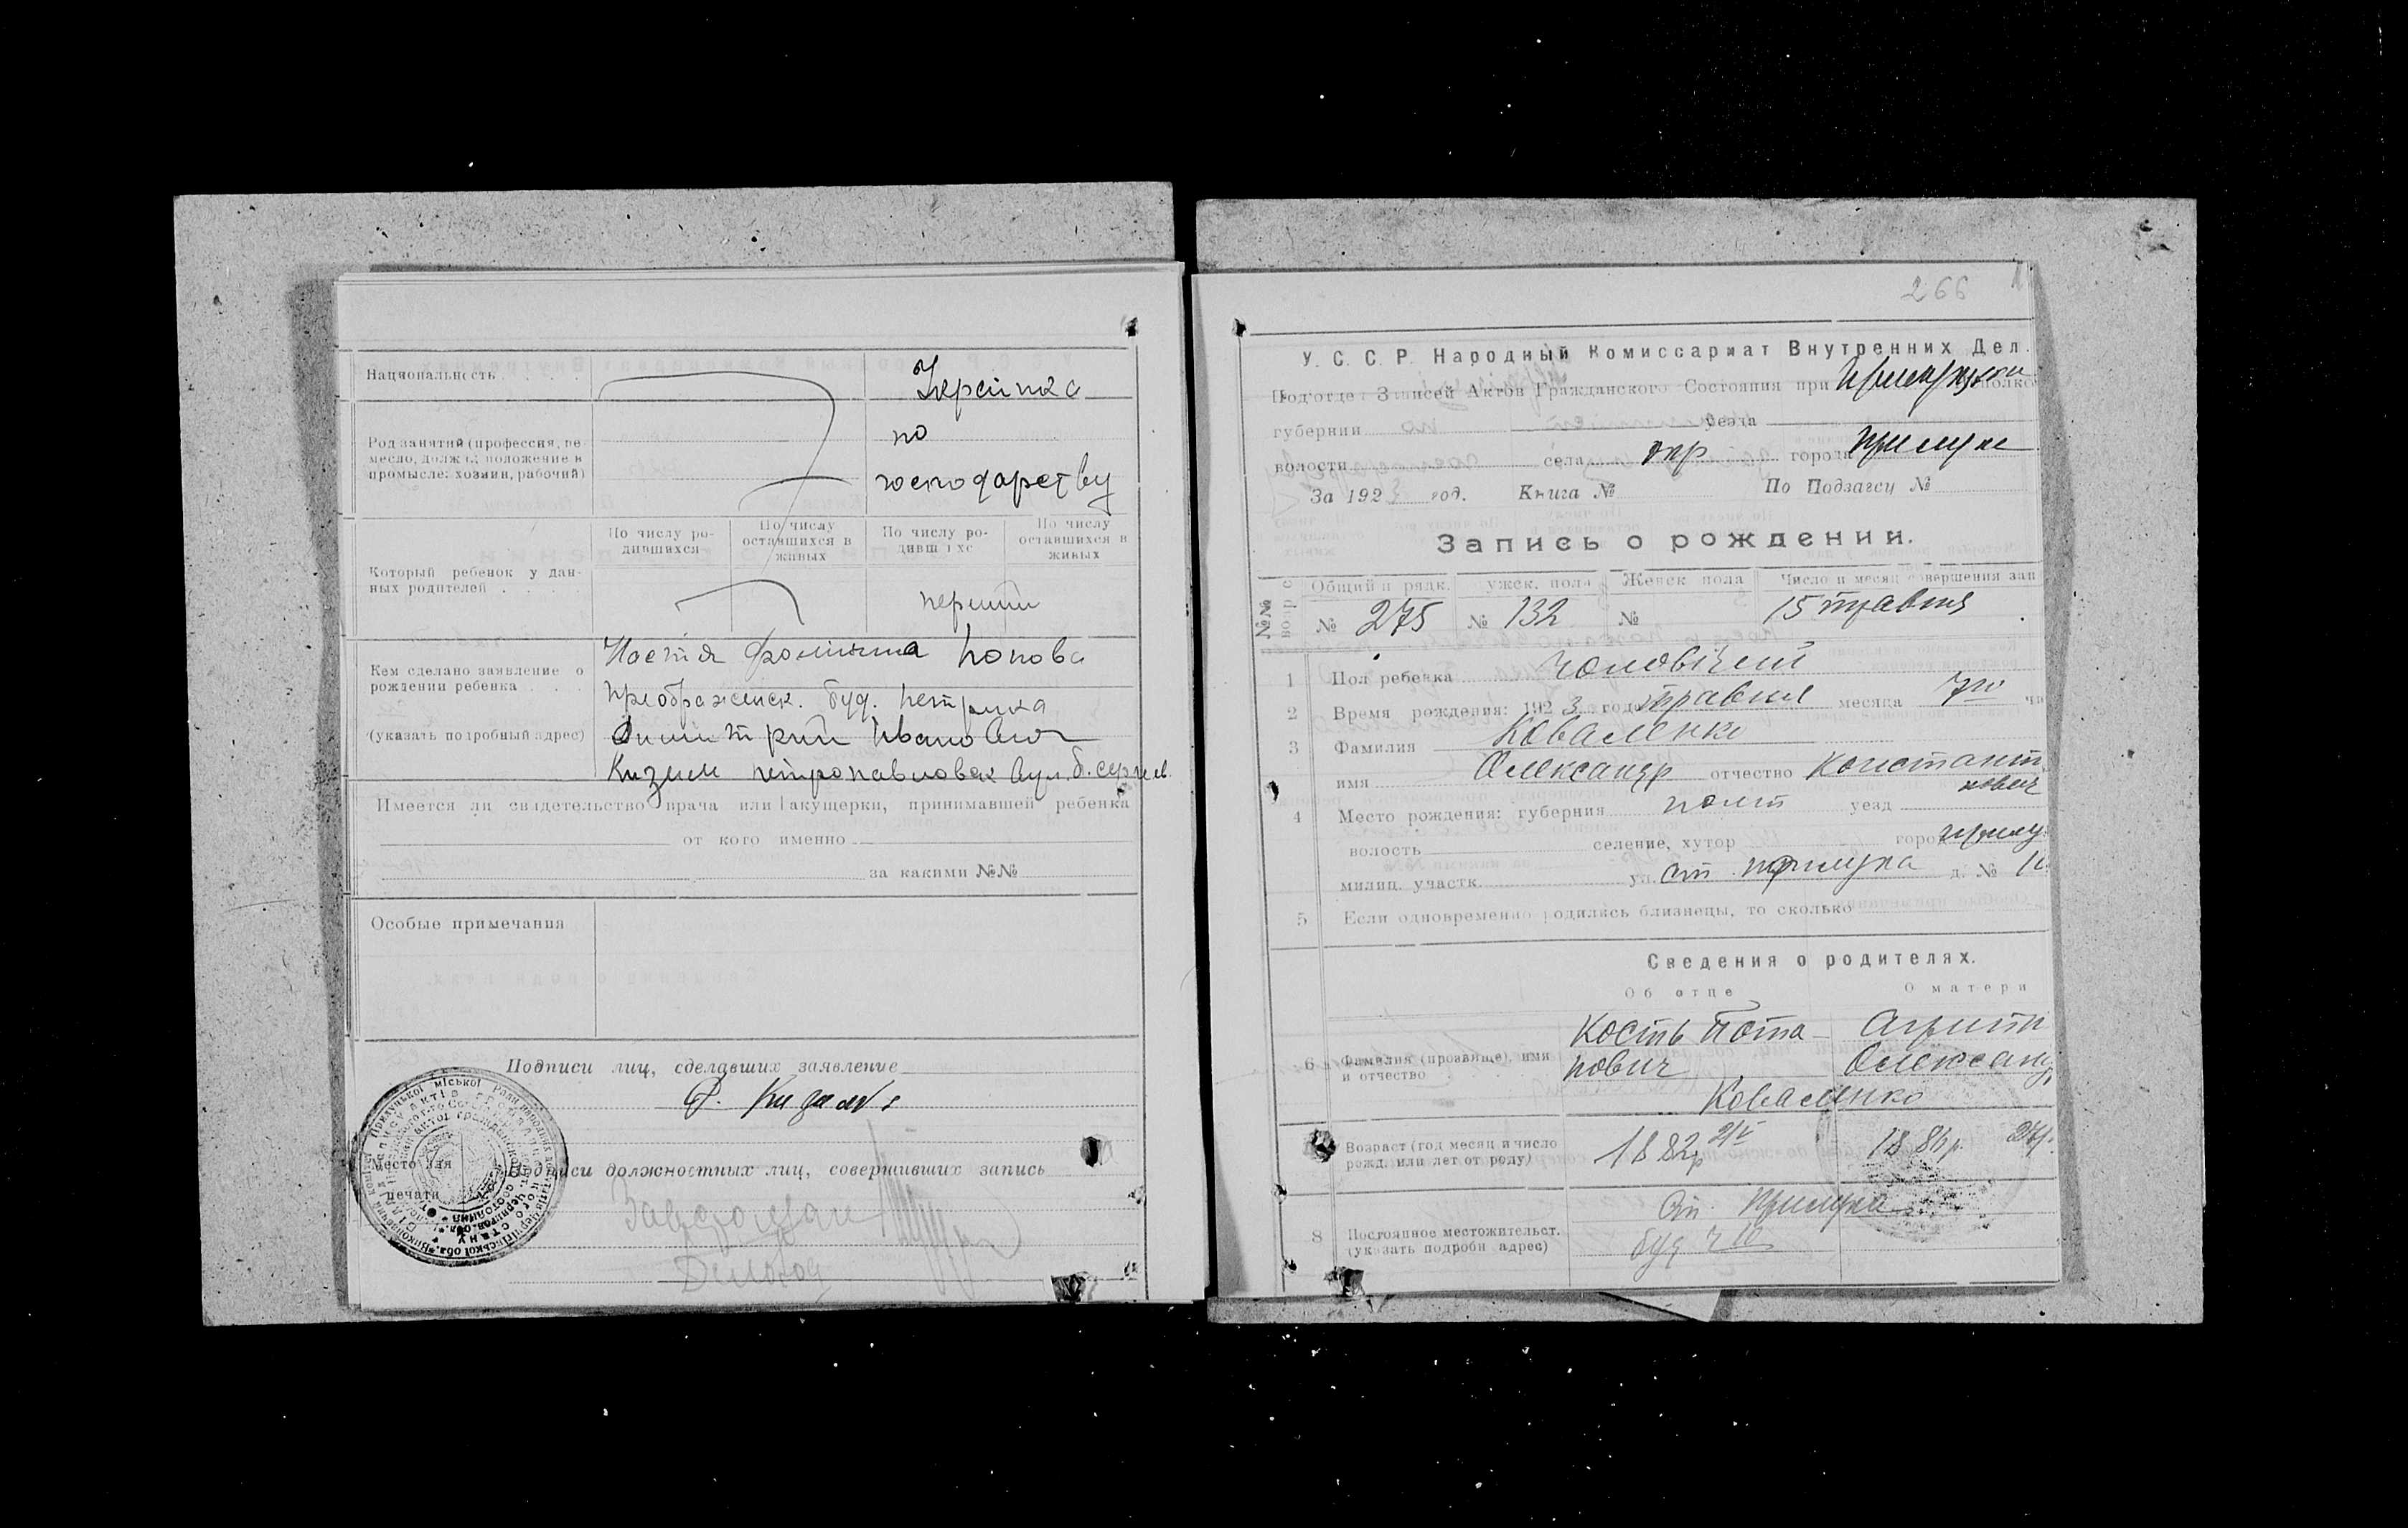 Национальность
Українка
Род занятий (профессия, ре-
месло, должн. положение в
промысле: хозяин, рабочий)
по
господарству
По числу ро-
дившихся
По числу
оставшихся в
живых
По числу ро-
дившихс
По числу
оставшихся в
живых
Который ребенок у дан-
ных родителей
перший
Кем сделано заявление о
рождении ребенка
(указать подробный адрес)
Настя Фомінічна Попова
Преображенск. буд. Петрика
Дишітрий Іванович
Кизим Петропавловск вул. б. Сергіев.
Имеется ли свидетельство врача или акушерки, принимавшей ребенка
от кого именно
за какими №№
Особые примечания
Подписи лиц, сделавших заявление
Место для
печати
Подписи должностных лиц, совершивших запись
Діловод
266
У. С. С. Р. Народный Комиссариат Внутренних Дел.
Подотдел Записей Актов Гражданского Состояния при
губернии уезда
волости села окр города Прилуке
За 1923 год. Книга № По Подзагсу №
Запись о рождении.
Общий п рядк. мужск. пола Женск пола Число и месяц совершения зап
№ 275 № 132 № 15 травня
1 Пол ребенка Чоловічий
2 Время рождения: 1923 года травня месяца 7го
3 Фамилия Коваленко
имя Олександр отчество Констант
нович
4 Место рождения: губерния Полт уезд
волость селение, хутор город Прилу
милиц. участк. ул. Ст. Прилука д. №
5 Если одновременно родились близнецы, то сколько
Сведения о родителях.
Об отце О матери
6 Фамилия (прозвище), имя
и отчество
Кость Пота-
пович
Олександ
Коваленко
Возраст (год месяц и число
рожд. или лет от роду)
1882р
8 Постоянное местожительст.
(указать подробн адрес)
Ст. Прилука
буд ч 10